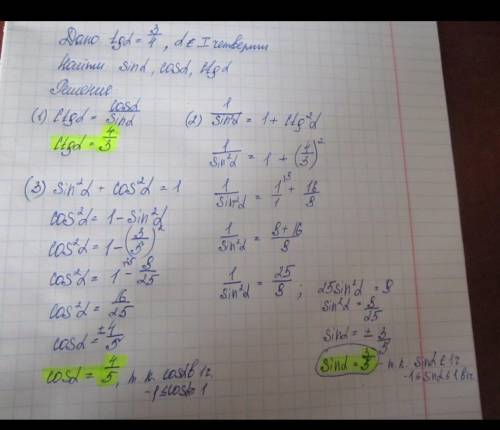 Дано tgα = 3/4, α ∈ I четверти
Найти sinα, cosα, ctgα
Решение
(1) ctgα = cosα/sinα
ctgα = 4/3
(2) 1/sin²α = 1 + ctg²α
1/sin²α = 1 + (4/3)²
1/sin²α = 1/1 + 16/9
1/sin²α = (9+16)/9
1/sin²α = 25/9; 25sin²α = 9
sin²α = 9/25
sinα = ± 3/5
sinα = 3/5 – т.к. sinα ∈ 1г
-1 ≤ sinα ≤ 1
(3) sin²α + cos²α = 1
cos²α = 1 - sin²α
cos²α = 1 - (3/5)²
cos²α = 1 - 9/25
cos²α = 16/25
cosα = ± 4/5
cosα = 4/5, т.к. cosα в 1г.
-1 ≤ cosα ≤ 1